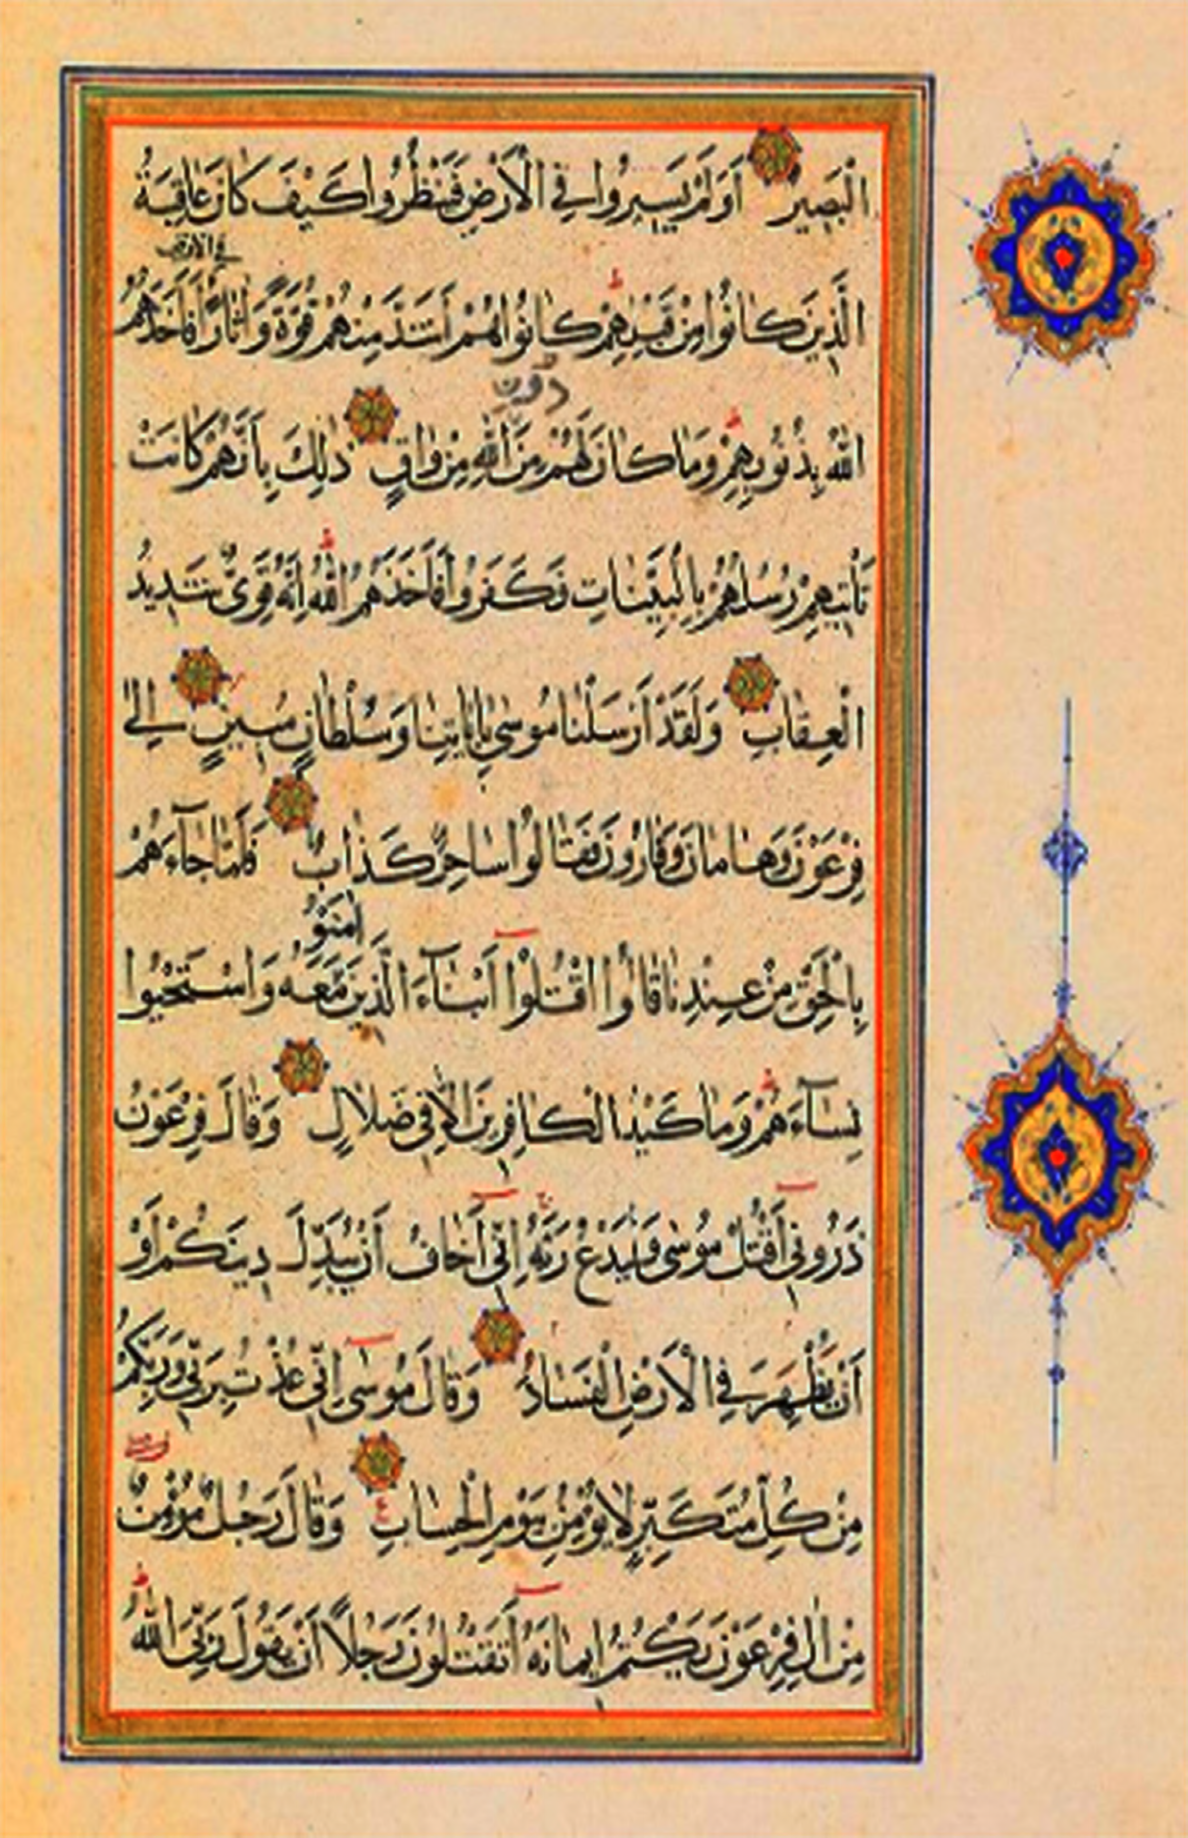 الْبَصِيرُ اَوَلَمْ يَسِيرُوا فِي الْاَرْضِ فَيَنْظُرُوا كَيْفَ كَانَ عَاقِبَةُ
في الارض
الَّذِينَ كَانُوا مِنْ قَبْلِهِمْ كَانُوا هُمْ اَشَدَّ مِنْهُمْ قُوَّةً وَاٰثَارًا فَاَخَذَهُمُ
دون
اللّٰهُ بِذُنُوبِهِمْ وَمَا كَانَ لَهُمْ مِنَ اللّٰهِ مِنْ وَاقٍ ذٰلِكَ بِاَنَّهُمْ كَانَتْ
تَاْتِيهِمْ رُسُلُهُمْ بِالْبَيِّنَاتِ فَكَفَرُوا فَاَخَذَهُمُ اللّٰهُ اِنَّهُ قَوِيٌّ شَدِيدُ
الْعِقَابِ وَلَقَدْ اَرْسَلْنَا مُوسٰى بِاٰيَاتِنَا وَسُلْطَانٍ مُبِينٍ اِلٰى
فِرْعَوْنَ وَهَامَانَ وَقَارُونَ فَقَالُوا سَاحِرٌ كَذَّابٌ فَلَمَّا جَآءَهُمْ
اٰمَنُو
بِالْحَقِّ مِنْ عِنْدِنَا قَالُوا اقْتُلُوا اَبْنَآءَ الَّذِينَ مَعَهُ وَاسْتَحْيُوا
نِسَآءَهُمْ وَمَا كَيْدُ الْكَافِرِينَ اِلَّا فِي ضَلَالٍ وَقَالَ فِرْعَوْنُ
ذَرُونِي اَقْتُلْ مُوسٰى وَلْيَدْعُ رَبَّهُ اِنِّي اَخَافُ اَنْ يُبَدِّلَ دِينَكُمْ اَوْ
اَنْ يُظْهِرَ فِي الْاَرْضِ الْفَسَادَ وَقَالَ مُوسٰى اِنِّي عُذْتُ بِرَبِّي وَرَبِّكُمْ
مِنْ كُلِّ مُتَكَبِّرٍ لَا يُؤْمِنُ بِيَوْمِ الْحِسَابِ ع وَقَالَ رَجُلٌ مُؤْمِنٌ
مِنْ اٰلِ فِرْعَوْنَ يَكْتُمُ اِيمَانَهُ اَتَقْتُلُونَ رَجُلًا اَنْ يَقُولَ رَبِّيَ اللّٰهُ